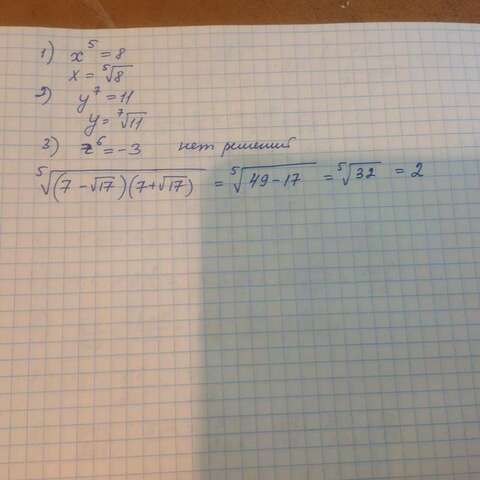 1) x⁵ = 8
x = ⁵√8
2) y⁷ = 11
y = ⁷√11
3) z⁶ = -3 нет решений
⁵√(7 - √17)(7 + √17) = ⁵√49 - 17 = ⁵√32 = 2